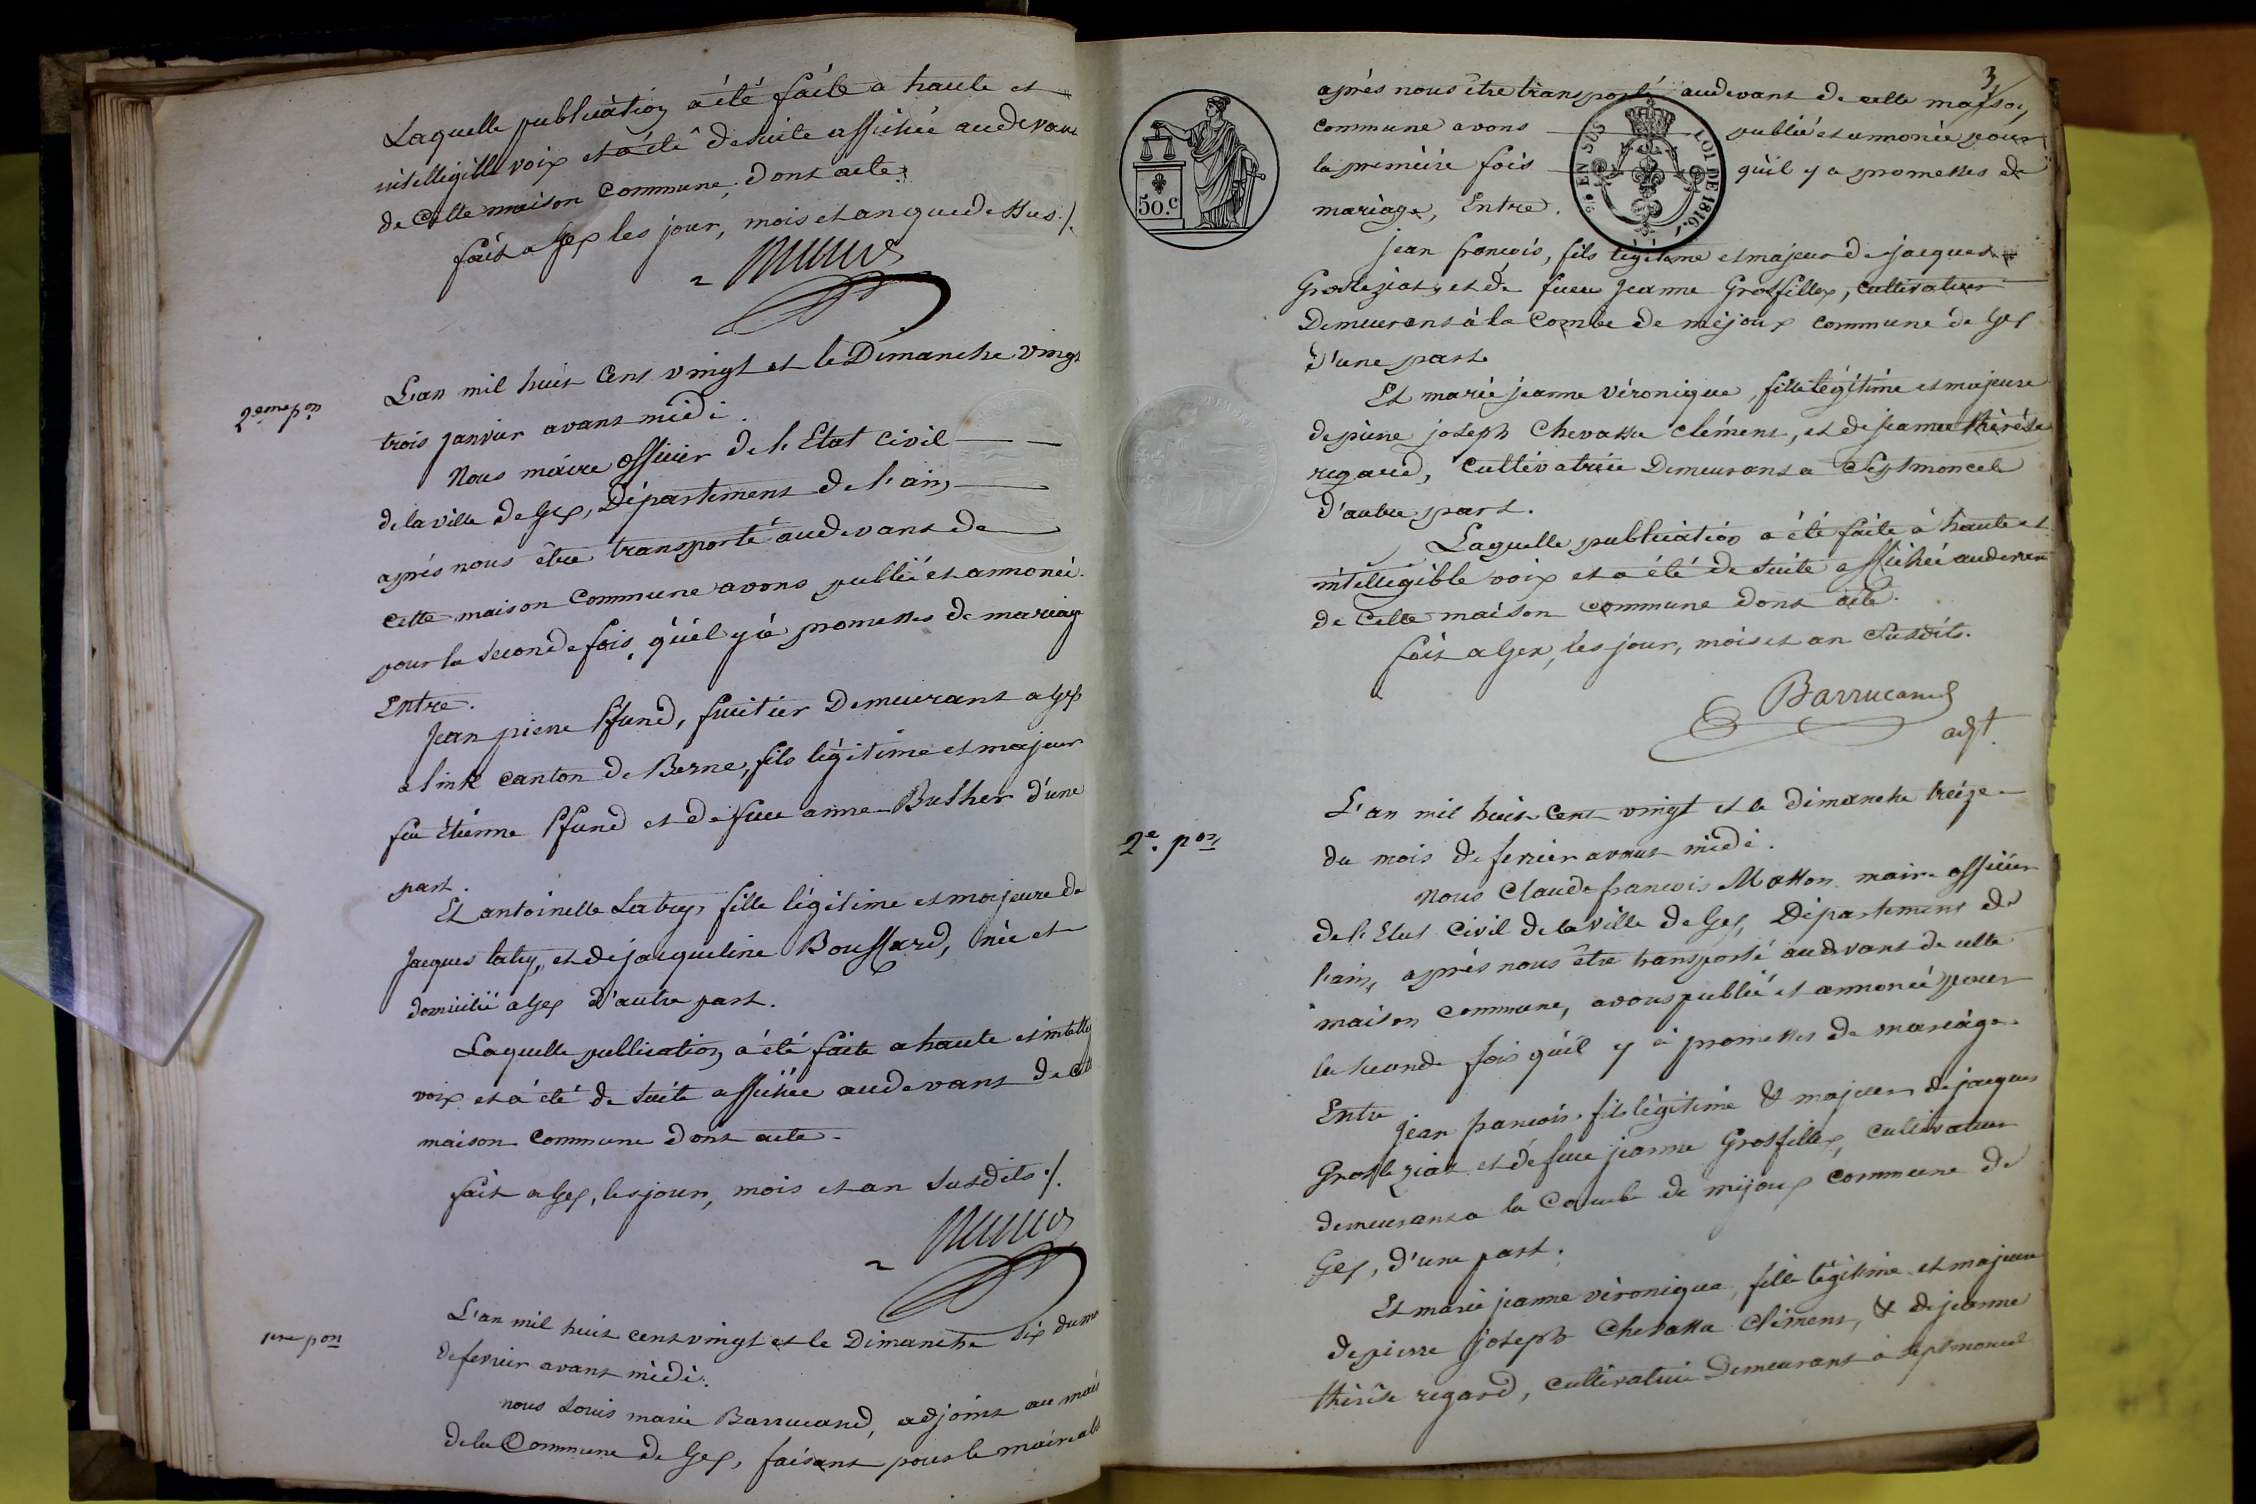 Laquelle publication a été faite a haute et
intelligible voix et a été de suite affichée audevant
de cette maison commune, dont acte.
fait a Gex les jour, mois et an que dessus ./.
2eme pon
L'an mil huit cent vingt et le Dimanche vingt
trois janvier avant midi.
Nous maire officier de l'Etat civil
de la ville de Gex, Département de l'ain,
après nous être transporté audevant de
cette maison commune avons publié et annoncé
pour la seconde fois, qu'il y a promesses de mariage
Entre.
Jean pierre Pfund, fruitier Demeurant a Gex
a link canton de Berne, fils légitime et majeur
feu étiénne Pfund et de feue anne Busher d'une
part.
Et antoinette fille légitime et majeure de
Jacques et de jacqueline Bouffard, née et
domicilié a Gex d'autre part.
Laquelle publication a été faite a haute et intellig
voix et a été de suite affichée audevant de cette
maison commune dont acte.
fait a Gex, les jour, mois et an susdits ./.
1ere pon
L'an mil huit cent vingt et le Dimanche six du mois
de fevrier avant midi.
nous Louis marie Barrucand, adjoint au maire
de la Commune de Gex, faisant pour le maire abs
3
50.c
EN SUS
LOI DE 1816.
après nous être transporté audevant de cette maison
commune avons publié et annoncé pour
la premiére fois qu'il y a promesses de
mariage, Entre.
jean francois, fils légitime et majeur de jacques
Grosleziat, et de feue jeanne Grosfillex, cultivateur
Demeurant à la Combe de mijoux commune de Gex
d'une part
Et marie jeanne véronique, fille légitime et majeure
de pierre joseph Chevassu clément, et de jeanne thérése
regard, cultivatrice Demeurant a Septmoncel
d'autre part.
Laquelle publication a été faite à haute et
intelligible voix et a été de suite affichée audevant
de cette maison commune dont acte.
fait a Gex, les jour, mois et an susdits.
Barrucand
adjt
2e. pon
L'an mil huit cent vingt et le dimanche treize
du mois de fevrier avant midi.
nous Claude francois Matton maire officier
de l'Etat civil de la ville de Gex, Département de
l'ain, après nous être transporté audevant de cette
maison commune, avons publié et annoncé pour
la seconde fois qu'il y a promesses de mariage
Entre jean francois, fils légitime & majeur de jacques
Grosleziat et de feue jeanne Grosfillex, cultivateur
demeurant a la Combe de mijoux commune de
Gex, d'une part.
Et marie jeanne véronique, fille légitime et majeure
de pierre joseph Chevassu Clément, & de jeanne
thérése regard, cultivatrice Demeurant à septmoncel